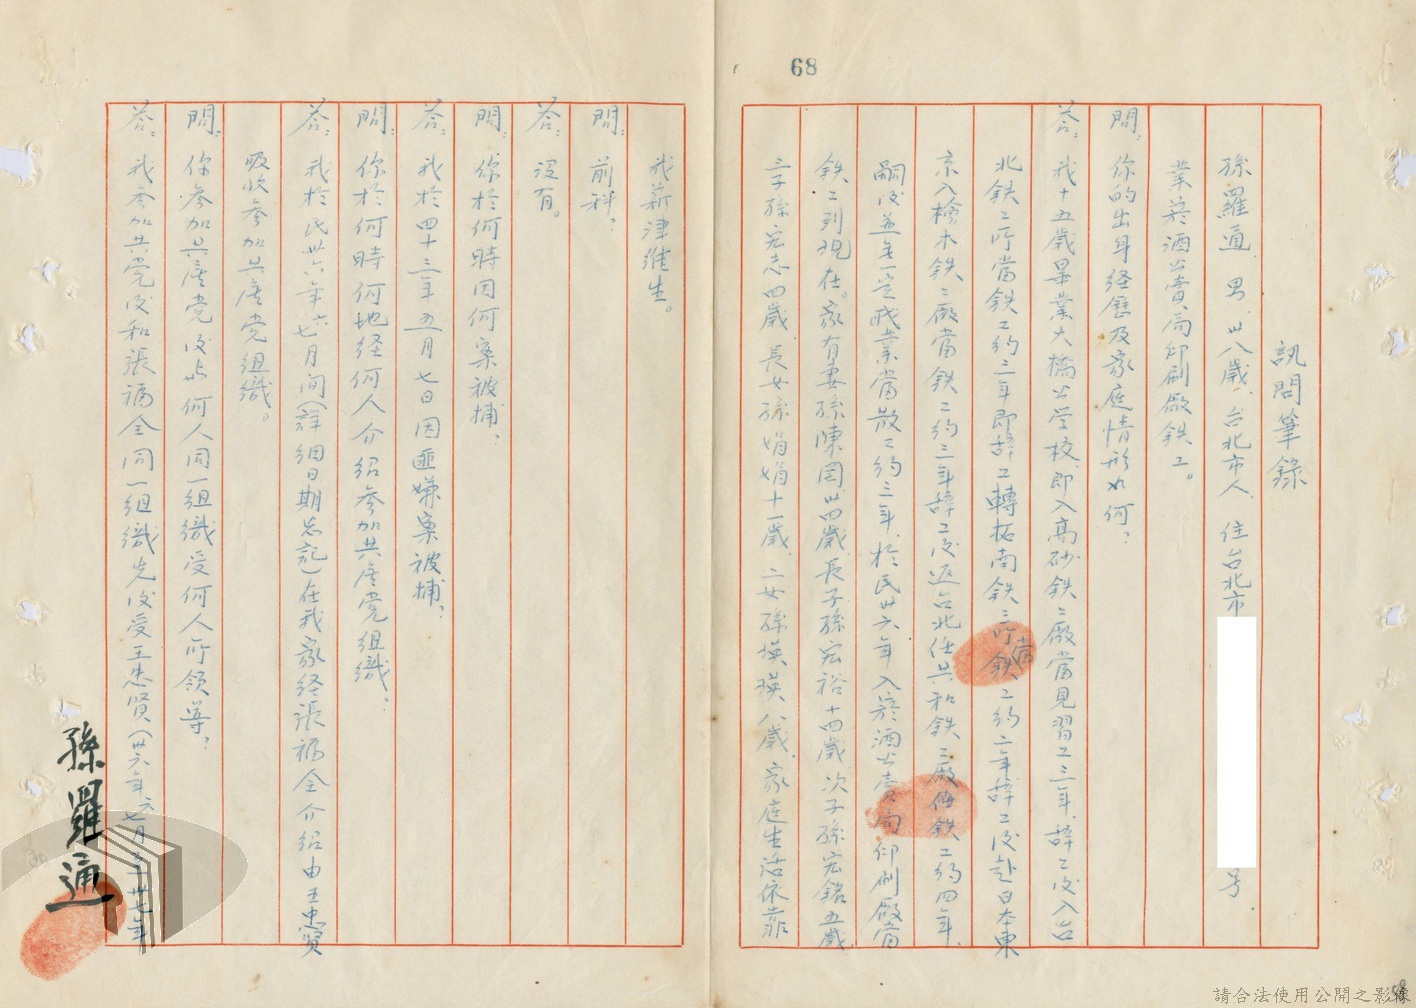 68
訊問筆錄
孫羅通 男 卅八歲、台北市人 住台北市 号
業菸酒公賣局印刷廠鉄工。
問：你的出身経歷及家庭情形如何？
答：我十五歲畢業大橋公学校、即入高砂鉄工廠當見習工三年、辞工後入台
北鉄工所當鉄工約三年即辞工轉拓南鉄工所當鉄工約二年辞工後赴日本東
京入檜木鉄工廠當鉄工約三年辞工後返台北任共和鉄工廠鉄工約四年、
嗣後並無一定職業當散工約三年、於民卅六年入菸酒公賣局印刷廠當
鉄工到現在。家有妻孫陳岡卅四歲、長子孫宏裕十四歲次子孫宏銘五歲
三子孫宏志四歲、長女孫娟娟十一歲、二女孫瑛瑛八歲、家庭生活依靠
我薪津維生。
問：前科？
答：沒有。
問：你於何時因何案被捕？
答：我於四十三年五月七日因匪嫌案被捕、
問：你於何時何地経何人介紹參加共產党組織？
答：我於民卅六年六七月间（詳細日期忘記）在我家経張福全介紹由王忠賢
吸收參加共產党組織。
問：你參加共產党後与何人同一組織受何人所領導？
答：我參加共党後和張福全同一組織先後受王忠賢（卅六年六七月至卅七年
孫羅通
請合法使用公開之影像